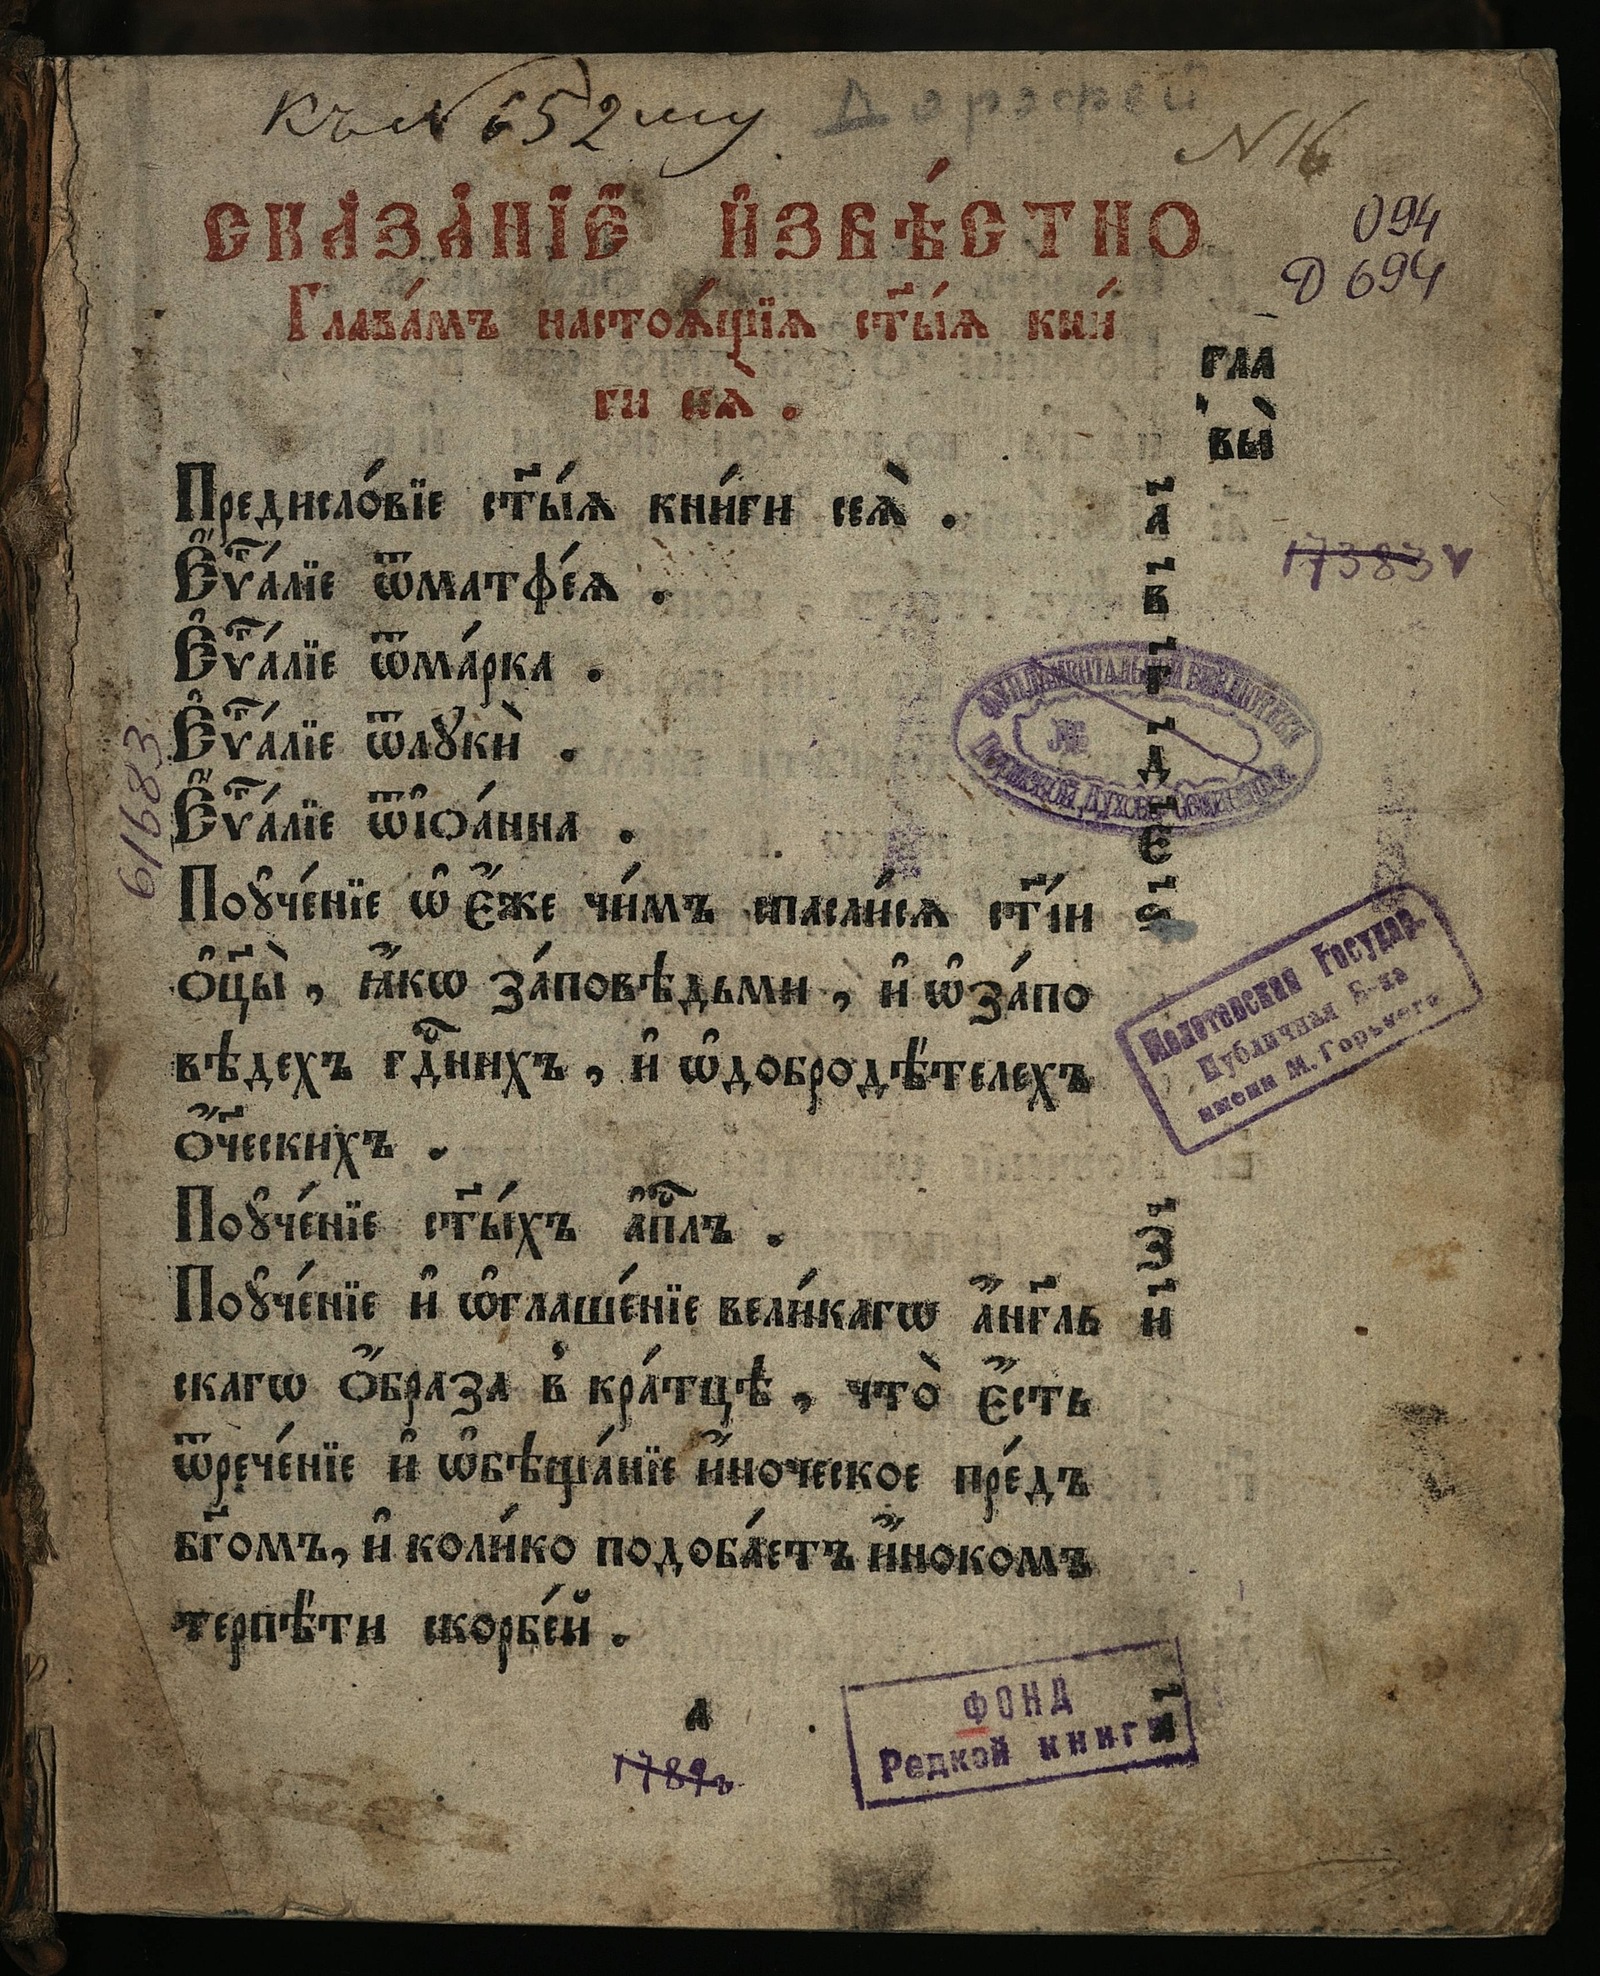 къ № 652 му
Дорофей
N 16
094
Д 694
СКАЗА́НЇЕ И҆ЗВѢ́СТНО
Глава́мъ настоѧ́щїѧ ст҃ы́ѧ кни́
ги сеѧ̀ .
гла
вы̀
Предисло́вїе ст҃ы́ѧ кни́ги сеѧ̀ . а҃
Є҆ѵⷢ҇а́лїе ѿматѳе́ѧ . в҃
Є҆ѵⷢ҇а́лїе ѿма́рка . г҃
Є҆ѵⷢ҇а́лїе ѿлꙋкѝ . д҃
Є҆ѵⷢ҇а́лїе ѿі҆ѡа́нна . є҃
Поꙋче́нїе ѡ҆ є҆́же чи́мъ спасли́сѧ ст҃і́и ѕ҃
ѻ҆ц҃ы̀ , ꙗ҆́кѡ за́повѣдьми , и҆ ѡ҆за́по
вѣдехъ гдⷭ҇нихъ , и҆ ѡ҆добродѣ́телехъ
ѻ҆́ч҃ескихъ .
Поꙋче́нїе ст҃ы́хъ а҆пⷭ҇лъ . з҃
Поꙋче́нїе и҆ ѡ҆глаше́нїе вели́кагѡ а҆́нг҃ль и҃
скагѡ ѻ҆́браза в̾ кра́тцѣ , что̀ є҆́сть
ѿрече́нїе и҆ ѡ҆бѣща́нїе и҆́ноческое пре́дъ
бг҃омъ , и҆ коли́ко подоба́етъ и҆́нокомъ
терпѣ́ти скорбе́й .
а
17383
61683
ФУНДАМЕНТАЛЬНОЙ БИБЛІОТЕКИ
№
Пермской Духовн. Семинаріи
Молотовская Государ.
Публичная Б-ка
имени М. Горького
ФОНД
Редкой книги